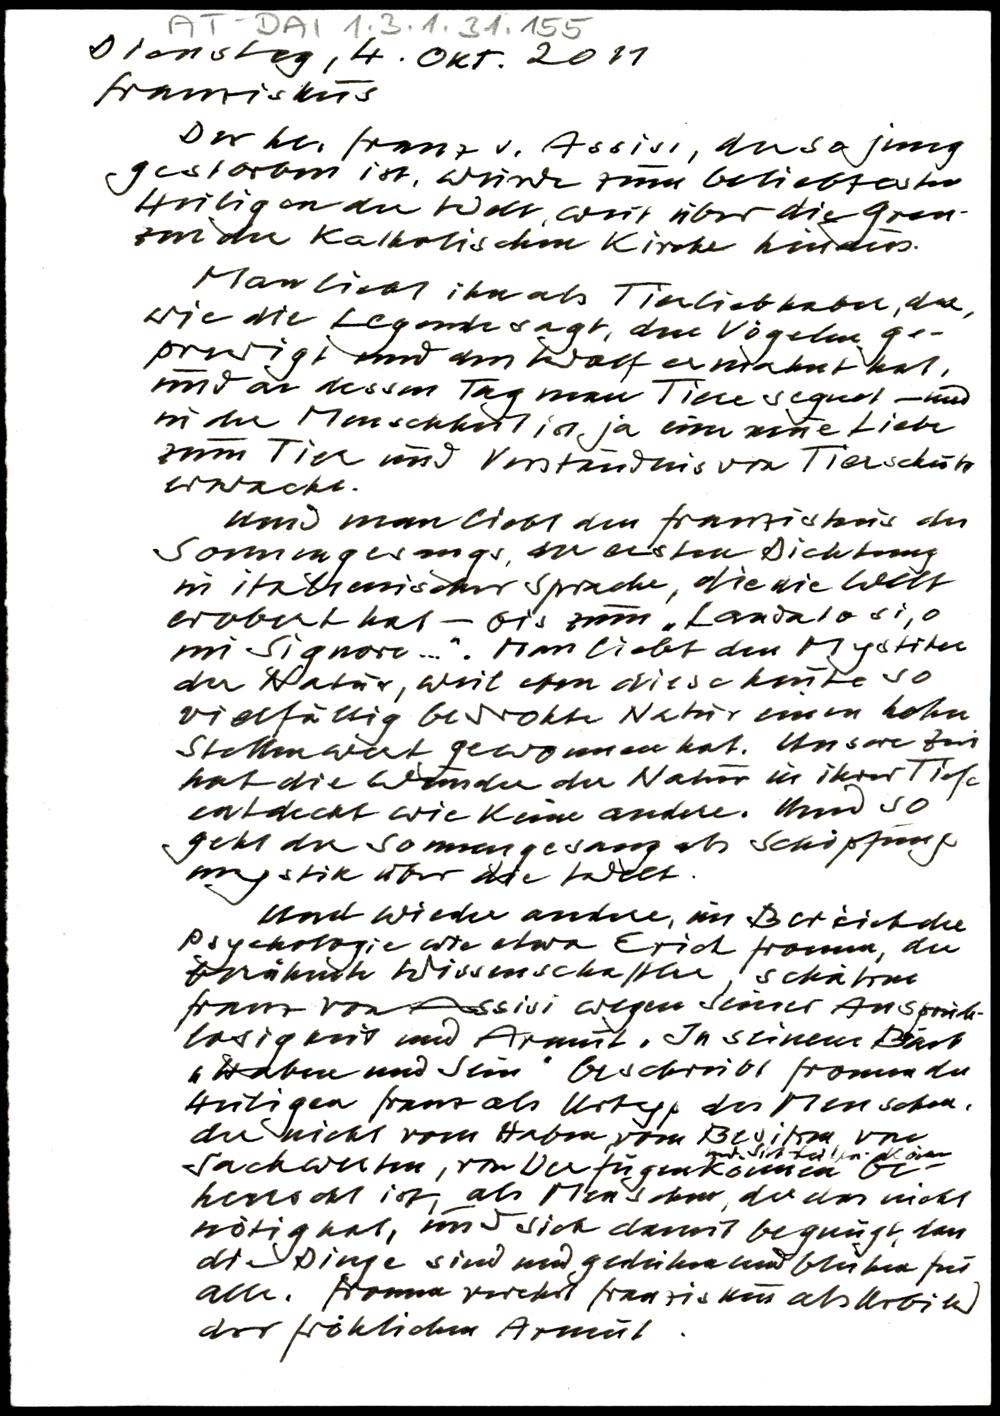 AT-DAI 1.3.1.31.155
Dienstag, 4. Okt. 2011
Franziskus
Der hl. Franz v. Assisi, der so jung
gestorben ist, wurde zum beliebtesten
Heiligen der Welt, weit über die Gren-
zen der Katholischen Kirche hinaus.
Man liebt ihn als Tierliebhaber, der,
wie die Legende sagt, den Vögeln ge-
predigt und den Wolf ermahnt hat,
und an dessen Tag man Tiere segnet – und
in der Menschheit ist ja eine neue Liebe
zum Tier und Verständnis von Tierschutz
erwacht.
Und man liebt den Franziskus des
Sonnengesangs, der ersten Dichtung
in italienischer Sprache, die die Welt
erobert hat – bis zum „Laudato si, o
mi Signore...“. Man liebt den Mystiker
der Natur, weil eben diese heute so
vielfältig bedrohte Natur einen hohen
Stellenwert gewonnen hat. Unsere Zeit
hat die Wunder der Natur in ihrer Tiefe
entdeckt wie keine andere. Und so
geht der Sonnengesang als Schöpfungs
mystik über die Welt.
Und wieder andere, im Bereich der
Psychologie wie etwa Erich Fromm, der
berühmte Wissenschaftler, schätzen
Franz von Assisi wegen seiner Anspruchs-
losigkeit und Armut. In seinem Buch
„Haben und Sein“ beschreibt Fromm den
Heiligen Franz als Urtyp des Menschen,
der nicht vom Haben, vom Besitzen von
Sachwerten, von Verfügenkönnen be-
herrscht ist, als Menschen, der das nicht
nötig hat, und sich damit begnügt, dass
die Dinge sind und gedeihen und blühen für
alle. Fromm verehrt Franziskus als Urbild
der fröhlichen Armut.